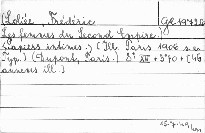 Loliée, Frédéric
Les femmes du Second Empire.
(Papiers intimes.) (Ill. Paris 1906 s.n.
Typ.) (Dupont, Paris.) 8° XII + 370 + [4]
annexes ill.)